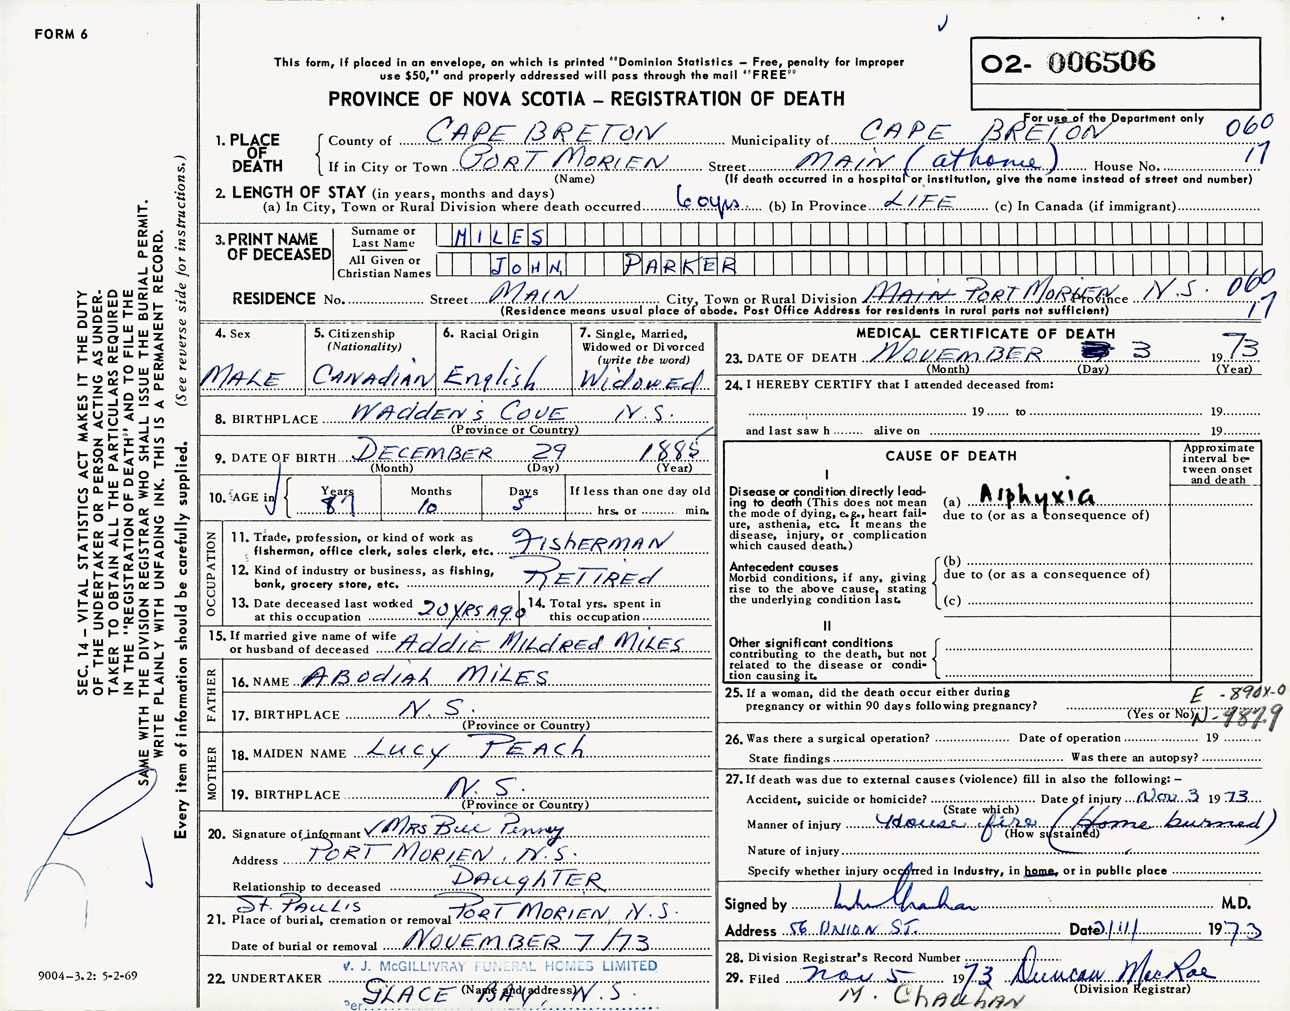 FORM 6
This form, if placed in an envelope, on which is printed "Dominion Statistics – Free, penalty for improper
use $50," and properly addressed will pass through the mail "FREE"
O2- 006506
PROVINCE OF NOVA SCOTIA – REGISTRATION OF DEATH
For use of the Department only
1. PLACE OF DEATH
County of CAPE BRETON Municipality of CAPE BRETON 060
If in City or Town PORT MORIEN Street MAIN (at home) House No. 17
(Name) (If death occurred in a hospital or institution, give the name instead of street and number)
2. LENGTH OF STAY (in years, months and days)
(a) In City, Town or Rural Division where death occurred 60 yrs. (b) In Province LIFE (c) In Canada (if immigrant)
3. PRINT NAME OF DECEASED
Surname or Last Name MILES
All Given or Christian Names JOHN PARKER
RESIDENCE No. Street MAIN City, Town or Rural Division MAIN PORT MORIEN Province N.S. 060
17
(Residence means usual place of abode. Post Office Address for residents in rural parts not sufficient)
4. Sex
MALE
5. Citizenship
(Nationality)
CANADIAN
6. Racial Origin
English
7. Single, Married,
Widowed or Divorced
(write the word)
Widowed
8. BIRTHPLACE WADDEN'S COVE N.S.
(Province or Country)
9. DATE OF BIRTH DECEMBER 29 1885
(Month) (Day) (Year)
10. AGE in
Years Months Days If less than one day old
87 10 5 hrs. or min.
OCCUPATION
11. Trade, profession, or kind of work as
fisherman, office clerk, sales clerk, etc. FISHERMAN
12. Kind of industry or business, as fishing,
bank, grocery store, etc. RETIRED
13. Date deceased last worked
at this occupation 20 YRS AGO
14. Total yrs. spent in
this occupation
15. If married give name of wife
or husband of deceased ADDIE MILDRED MILES
FATHER
16. NAME ABODIAH MILES
17. BIRTHPLACE N.S.
(Province or Country)
MOTHER
18. MAIDEN NAME LUCY PEACH
19. BIRTHPLACE N.S.
(Province or Country)
20. Signature of informant Mrs Bill Penny
Address PORT MORIEN, N.S.
Relationship to deceased DAUGHTER
St. PAULS
21. Place of burial, cremation or removal PORT MORIEN, N.S.
Date of burial or removal NOVEMBER 7/73
V. J. McGILLIVRAY FUNERAL HOMES LIMITED
22. UNDERTAKER GLACE BAY, N.S.
(Name and address)
Per
MEDICAL CERTIFICATE OF DEATH
23. DATE OF DEATH NOVEMBER 3 1973
(Month) (Day) (Year)
24. I HEREBY CERTIFY that I attended deceased from:
19 to 19
and last saw h alive on 19
CAUSE OF DEATH
Approximate
interval be-
tween onset
and death
I
Disease or condition directly lead-
ing to death (This does not mean
the mode of dying, e.g., heart fail-
ure, asthenia, etc. It means the
disease, injury, or complication
which caused death.)
(a) Asphyxia
due to (or as a consequence of)
Antecedent causes
Morbid conditions, if any, giving
rise to the above cause, stating
the underlying condition last.
(b)
due to (or as a consequence of)
(c)
II
Other significant conditions
contributing to the death, but not
related to the disease or condi-
tion causing it.
25. If a woman, did the death occur either during
pregnancy or within 90 days following pregnancy?
(Yes or No)
E -890X-0
N-987.9
26. Was there a surgical operation? Date of operation 19
State findings Was there an autopsy?
27. If death was due to external causes (violence) fill in also the following: –
Accident, suicide or homicide? Date of injury Nov 3 1973
(State which)
Manner of injury House fire (Home burned)
(How sustained)
Nature of injury
Specify whether injury occurred in Industry, in home, or in public place
Signed by M.D.
Address 56 UNION ST. Date 1973
28. Division Registrar's Record Number
29. Filed Nov. 5 1973 Duncan MacRae
(Division Registrar)
M. CHAUHAN
SEC. 14 – VITAL STATISTICS ACT MAKES IT THE DUTY
OF THE UNDERTAKER OR PERSON ACTING AS UNDER-
TAKER TO OBTAIN ALL THE PARTICULARS REQUIRED
IN THE "REGISTRATION OF DEATH" AND TO FILE THE
SAME WITH THE DIVISION REGISTRAR WHO SHALL ISSUE THE BURIAL PERMIT.
WRITE PLAINLY WITH UNFADING INK. THIS IS A PERMANENT RECORD.
Every item of information should be carefully supplied. (See reverse side for instructions.)
9004–3.2: 5-2-69